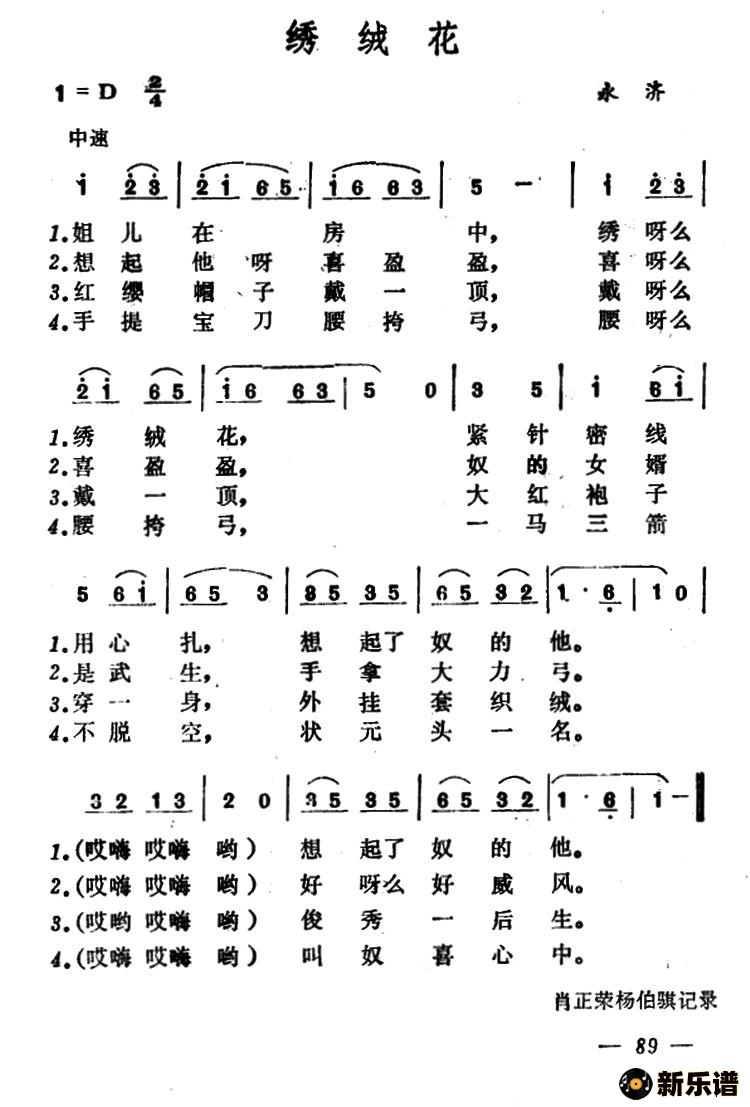 绣绒花
1=D 2/4 永济
中速
i 2̇3̇ | 2̇i 65 | i6 63 | 5 — | i 2̇3̇ |
1.姐儿在房中，绣呀么
2.想起他呀喜盈盈，喜呀么
3.红缨帽、子戴一顶，戴呀么
4.手提宝刀腰挎弓，腰呀么
2̇i 65 | i6 63 | 5 0 | 3 5 | i 6i |
1.绣绒花，紧针密线
2.喜盈盈，奴的女婿
3.戴一顶，大红袍子
4.腰挎弓，一马三箭
5 6i | 65 3 | 35 35 | 65 32 | 1·6̣ | 10 |
1.用心扎，想起了奴的他。
2.是武生，手拿大力弓。
3.穿一身，外挂套织绒。
4.不脱空，状元头一名。
32 13 | 2 0 | 35 35 | 65 32 | 1·6̣ | 1— ‖
1.(哎嗨哎嗨哟)想起了奴的他。
2.(哎嗨哎嗨哟)好呀么好威风。
3.(哎哟哎嗨哟)俊秀一后生。
4.(哎嗨哎嗨哟)叫奴喜心中。
肖正荣杨伯骐记录
— 89 —
新乐谱